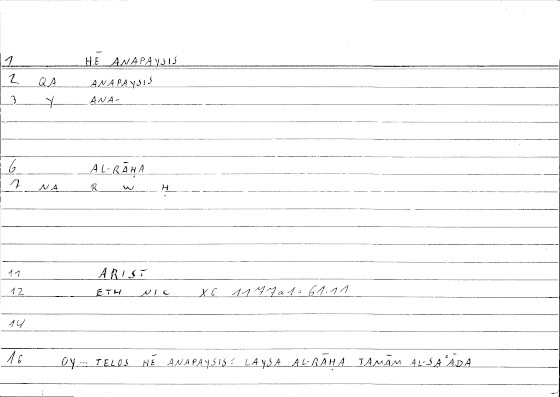 1 HĒ ANAPAYSIS
2 QA ANAPAYSIS
3 Y ANA-
6 AL-RĀḤA
7 NA R W Ḥ
11 ARIST
12 ETH NIC X6 1177a1 = 61.11
14
16 OY... TELOS HĒ ANAPAYSIS = LAYSA AL-RĀḤA TAMĀM AL-SAʿĀDA